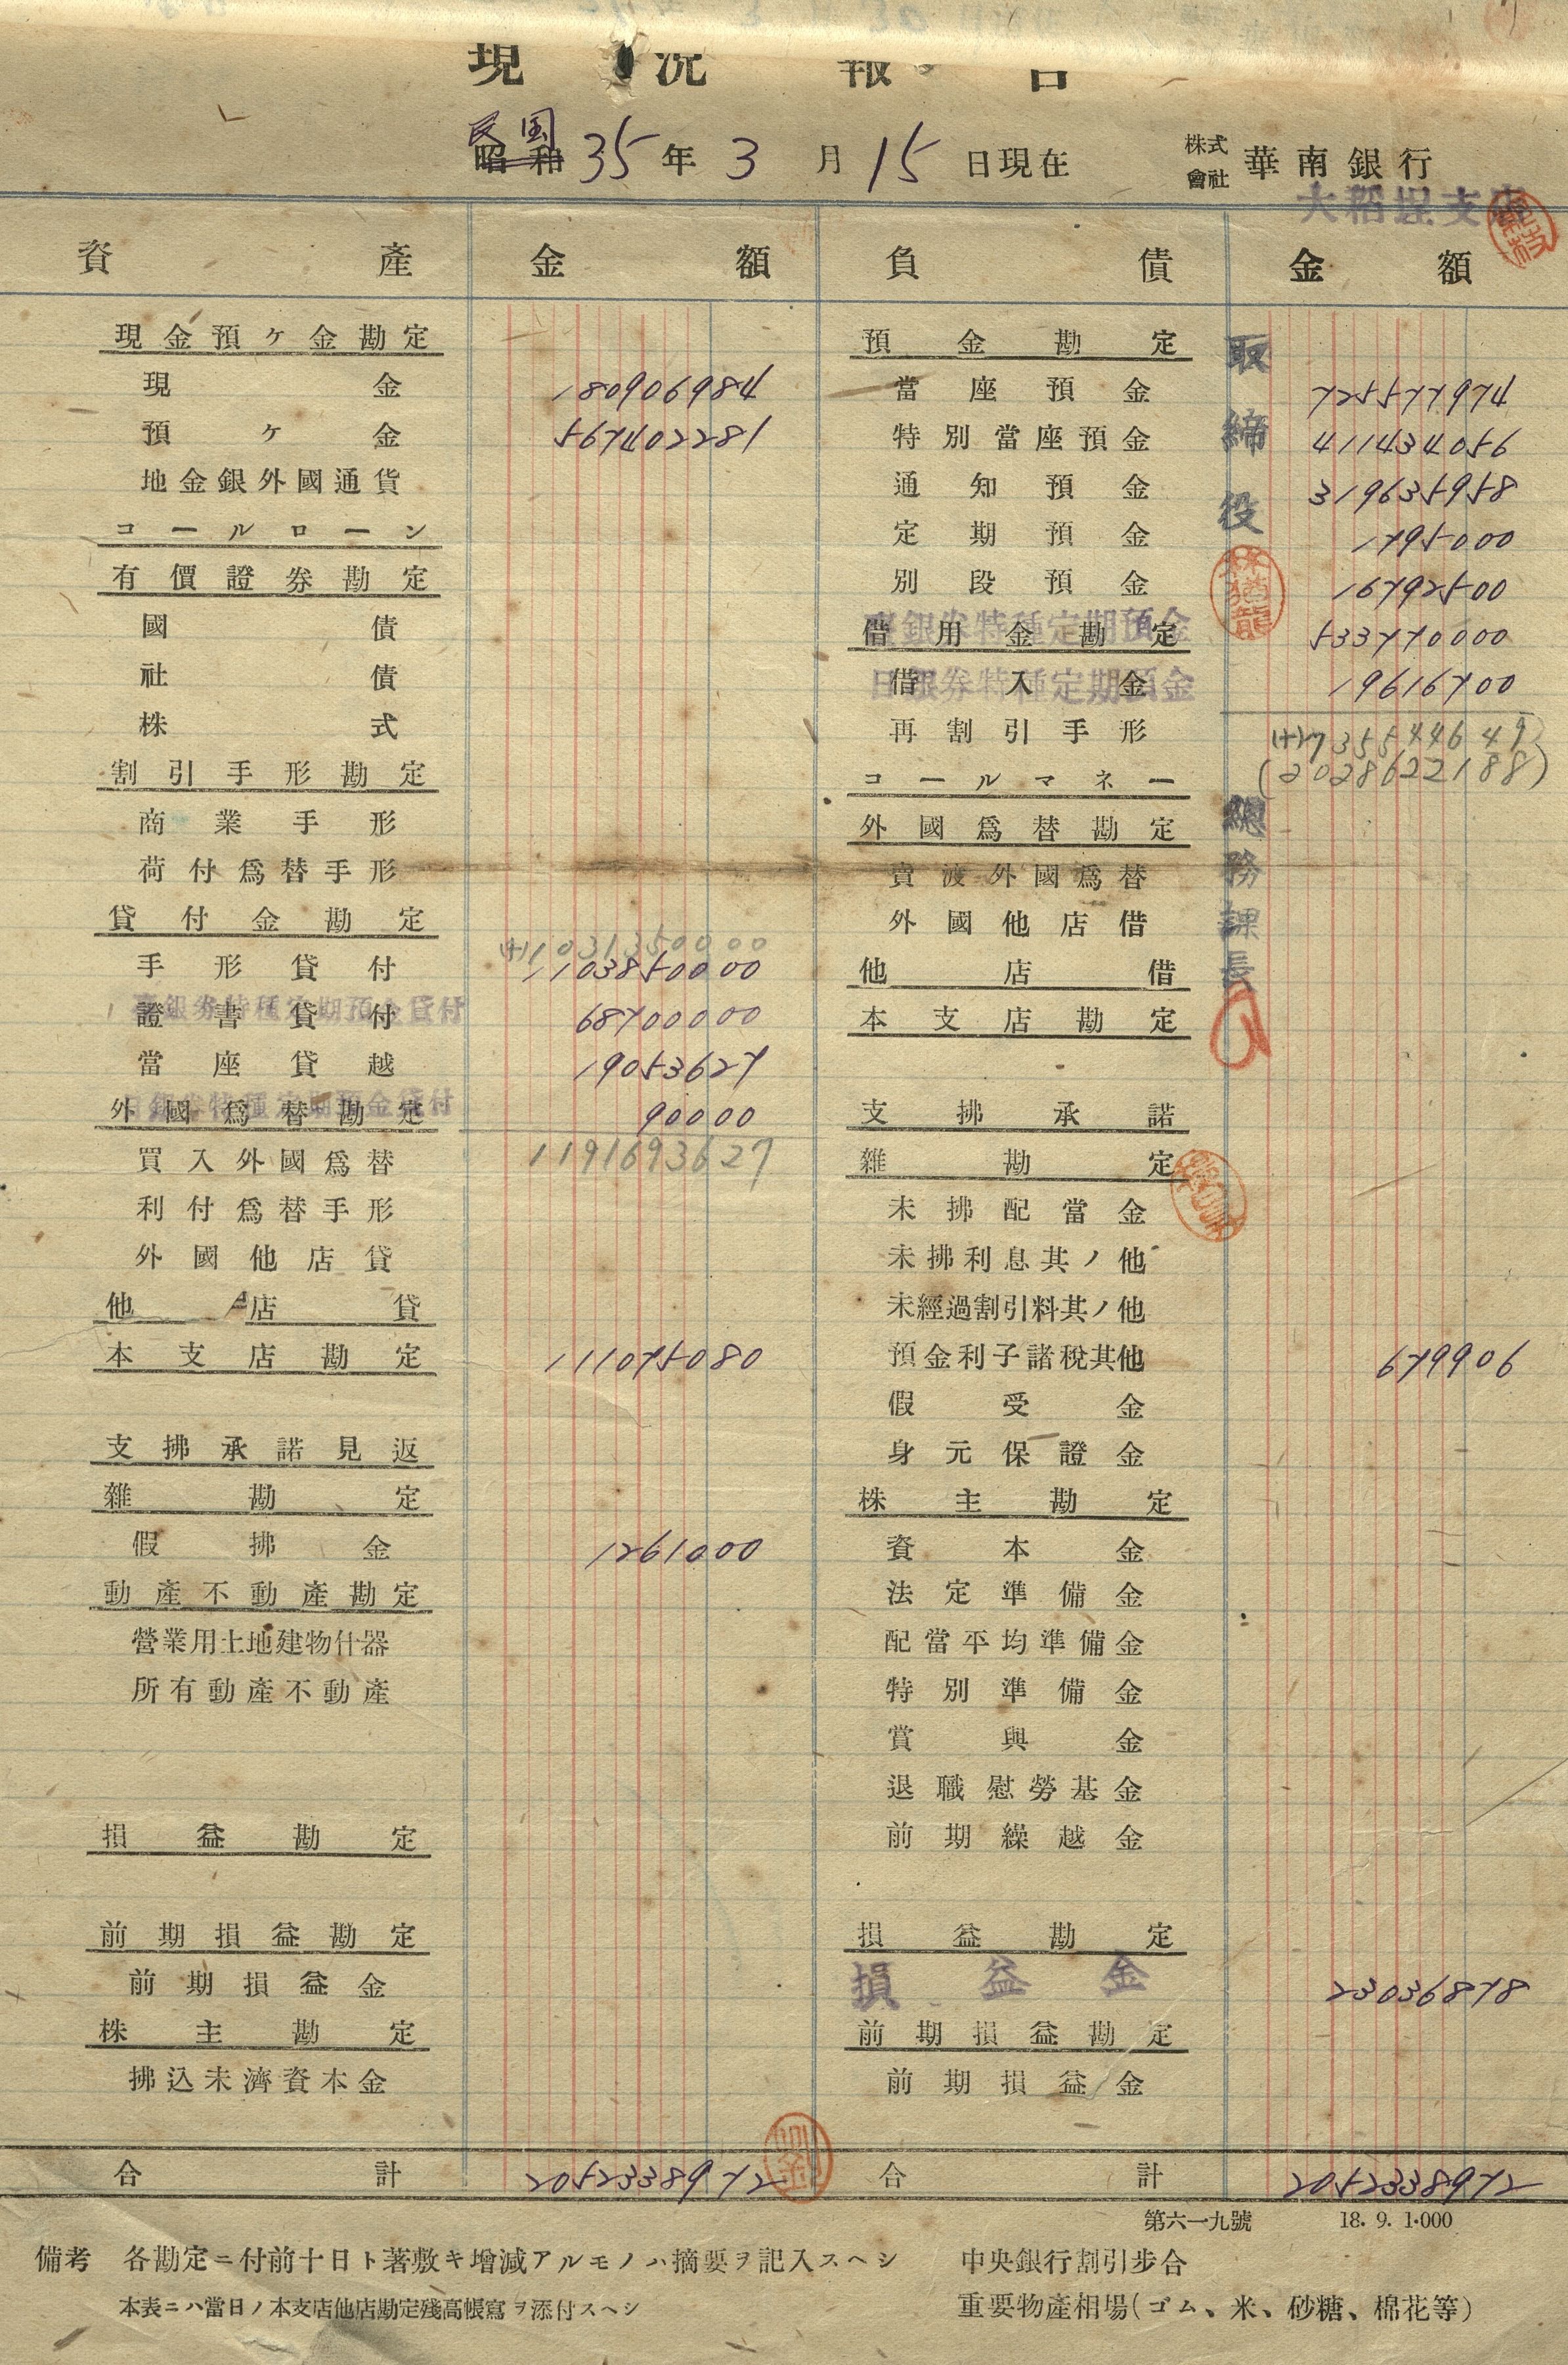 現況報告
民国
昭和 35年3月15日現在
株式會社 華南銀行
大稻埕支店
資產 金額 負債 金額
現金預ケ金勘定
現金 180906984
預ケ金 567402281
地金銀外國通貨
コールローン
有價證券勘定
國債
社債
株式
割引手形勘定
商業手形
荷付爲替手形
貸付金勘定
(+)1031350000
手形貸付 1103850000
臺銀券特種定期預金貸付
證書貸付 68700000
當座貸越 19053627
日銀券特種定期預金貸付
外國爲替勘定 90000
買入外國爲替 1191693627
利付爲替手形
外國他店貸
他店貸
本支店勘定 111075080
支拂承諾見返
雜勘定
假拂金 1261000
動產不動產勘定
營業用土地建物什器
所有動產不動產
損益勘定
前期損益勘定
前期損益金
株主勘定
拂込未濟資本金
合計 2052338972
預金勘定
當座預金 725577974
特別當座預金 411434056
通知預金 319635958
定期預金 1795000
別段預金 16792500
臺銀券特種定期預金
借用金勘定 533770000
日銀券特種定期預金
借入金 19616700
再割引手形
コールマネー (2028622188)
外國爲替勘定
賣渡外國爲替
外國他店借
他店借
本支店勘定
支拂承諾
雜勘定
未拂配當金
未拂利息其ノ他
未經過割引料其ノ他
預金利子諸稅其他 679906
假受金
身元保證金
株主勘定
資本金
法定準備金
配當平均準備金
特別準備金
賞與金
退職慰勞基金
前期繰越金
損益勘定
損益金 23036878
前期損益勘定
前期損益金
合計 2052338972
取締役
總務課長
第六一九號 18. 9. 1.000
備考 各勘定ニ付前十日ト著敷キ增減アルモノハ摘要ヲ記入スヘシ
本表ニハ當日ノ本支店他店勘定殘高帳寫ヲ添付スヘシ
中央銀行割引步合
重要物產相場(ゴム、米、砂糖、棉花等)